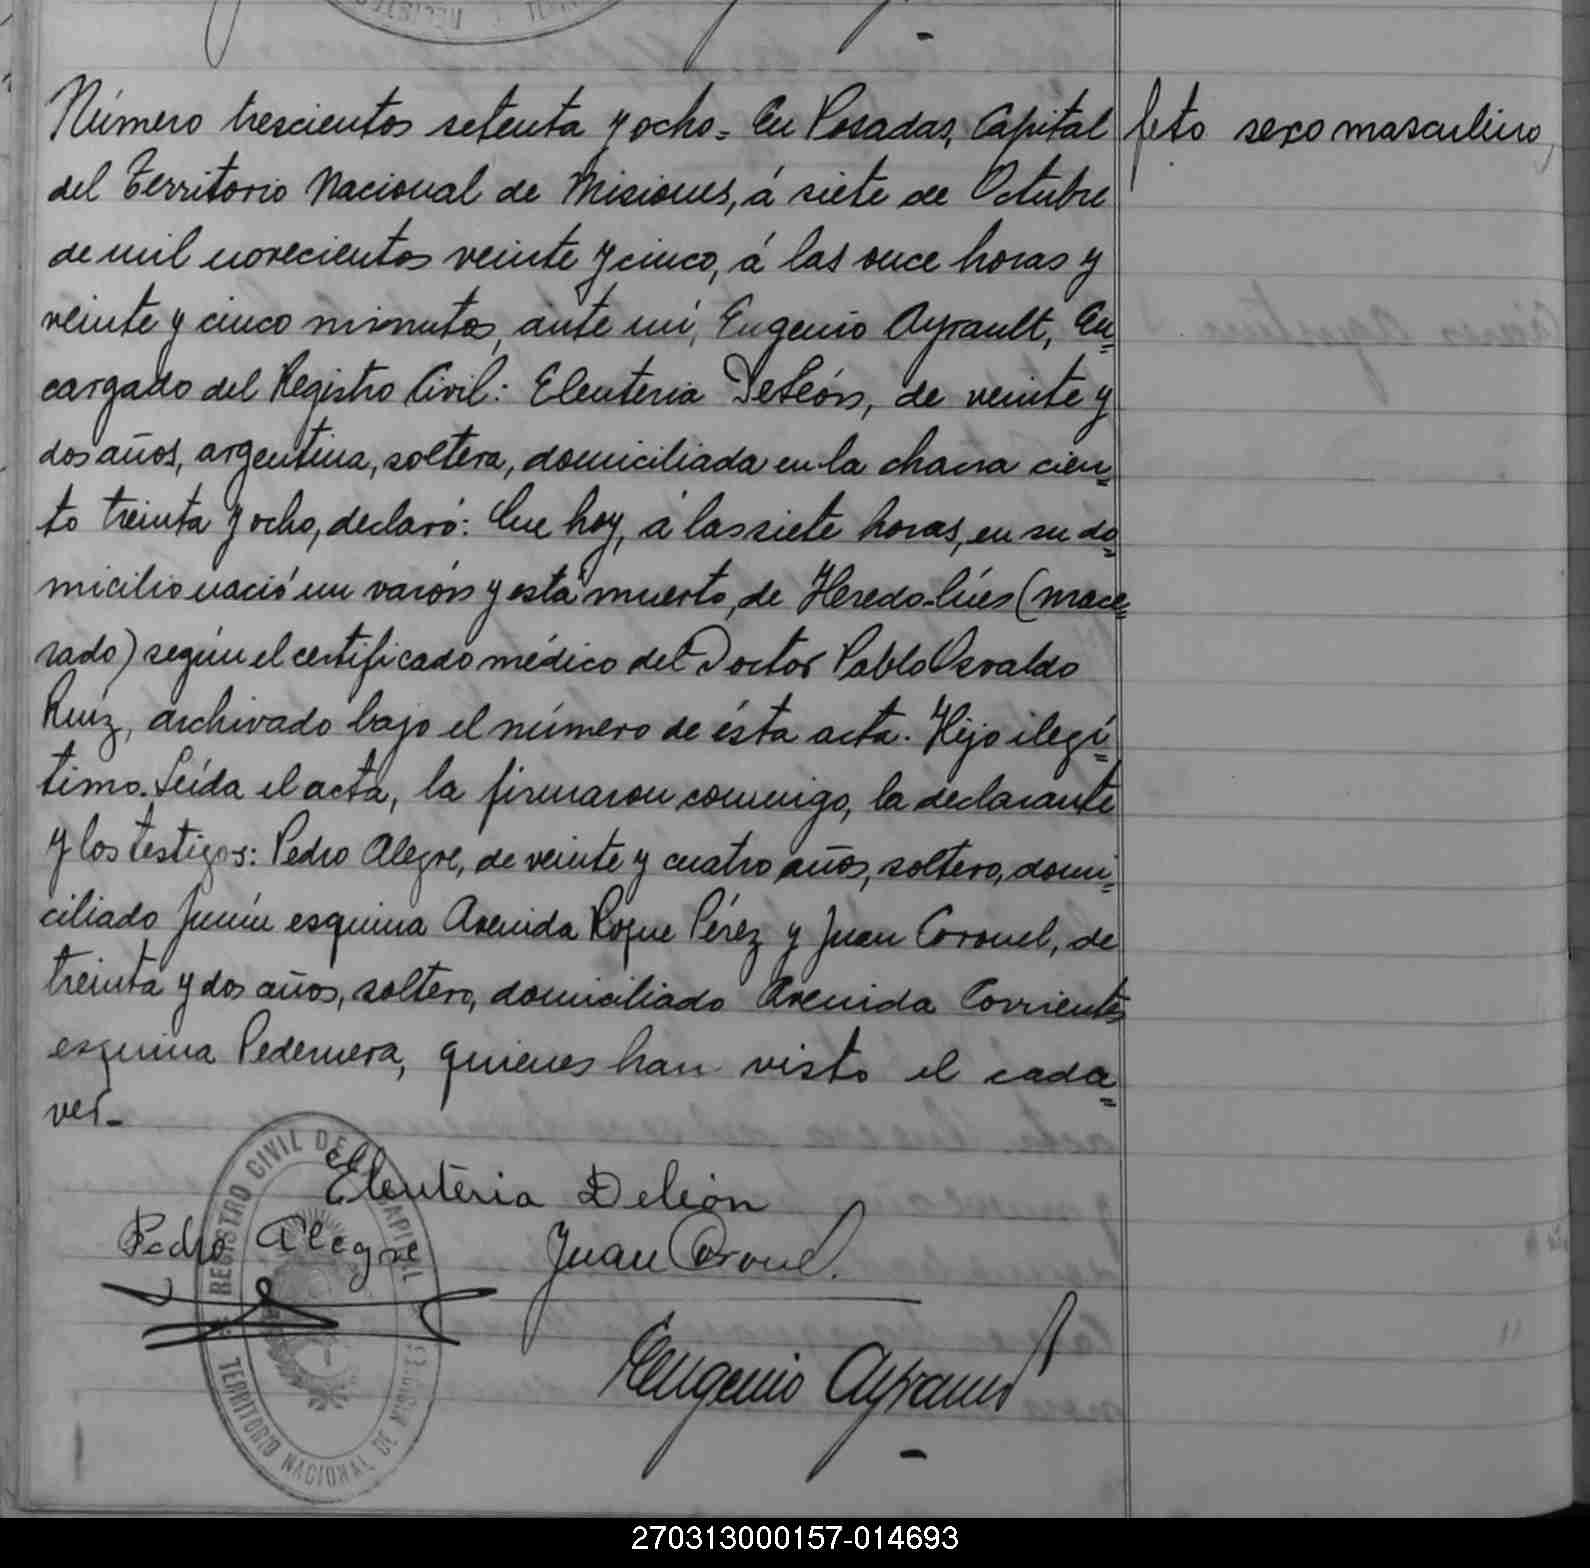 Número trescientos setenta y ocho= En Posadas, Capital
feto sexo masculino,
del Territorio Nacional de Misiones, á siete de Octubre
de mil novecientos veinte y cinco, á las once horas y
veinte y cinco minutos, ante mí, Eugenio Ayrault, En=
cargado del Registro Civil: Eleuteria DeLeón, de veinte y
dos años, argentina, soltera, domiciliada en la chacra cien=
to treinta y ocho, declaró: Que hoy, á las siete horas, en su do=
micilio nació un varón y está muerto, de Heredo-lúes (mace=
rado) según el certificado médico del Doctor Pablo Osvaldo
Ruíz, archivado bajo el número de ésta acta. Hijo ilegí=
timo. Leída el acta, la firmaron conmigo, la declarante
y los testigos: Pedro Alegre, de veinte y cuatro años, soltero, domi=
ciliado Junín esquina Avenida Roque Pérez y Juan Coronel, de
treinta y dos años, soltero, domiciliado Avenida Corrientes
esquina Pedernera, quienes han visto el cada=
ver.-
Eleuteria Deleón
Pedro Alegre
Juan Coronel.
Eugenio Ayrault
REGISTRO CIVIL DE LA CAPITAL
TERRITORIO NACIONAL DE MISIONES
270313000157-014693